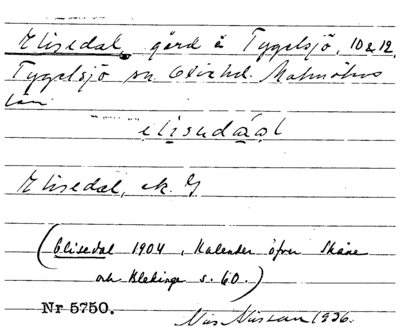 Elisedal, gård å Tygelsjö, 10 & 12,
Tygelsjö sn. Oxie hd. Malmöhus
län.
elisədɑ́ɑl
Elisedal, ek. K
(Elisedal 1904, Kalender öfver Skåne
och Blekinge s. 60.)
Nr 5750.
Nils Nilsson 1936.